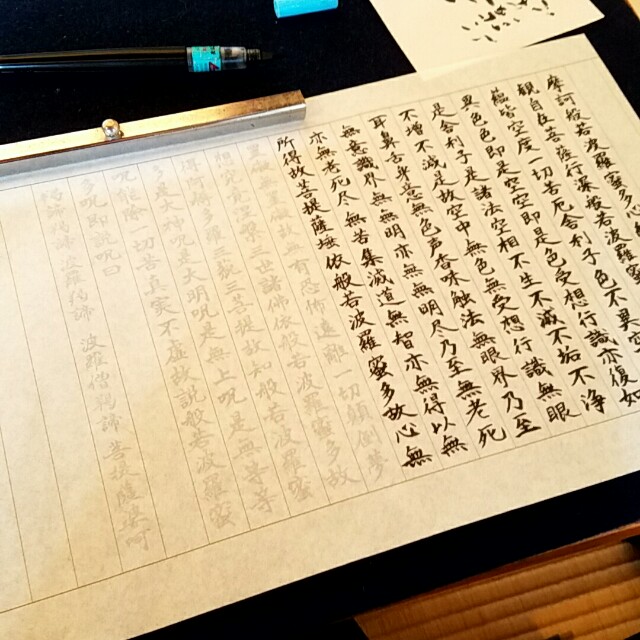 摩訶般若波羅蜜多心
観自在菩薩行深般若波羅蜜
蘊皆空度一切苦厄舎利子色不異空
異色色即是空空即是色受想行識亦復如
是舎利子是諸法空相不生不滅不垢不浄
不増不減是故空中無色無受想行識無眼
耳鼻舌身意無色声香味触法無眼界乃至
無意識界無無明亦無無明尽乃至無老死
亦無老死尽無苦集滅道無智亦無得以無
所得故菩提薩埵依般若波羅蜜多故心無
罣礙無罣礙故無有恐怖遠離一切顛倒夢
想究竟涅槃三世諸佛依般若波羅蜜多故
得阿耨多羅三藐三菩提故知般若波羅蜜
多是大神呪是大明呪是無上呪是無等等
呪能除一切苦真実不虚故説般若波羅蜜
多呪即説呪曰
羯諦羯諦 波羅羯諦 波羅僧羯諦 菩提薩婆訶